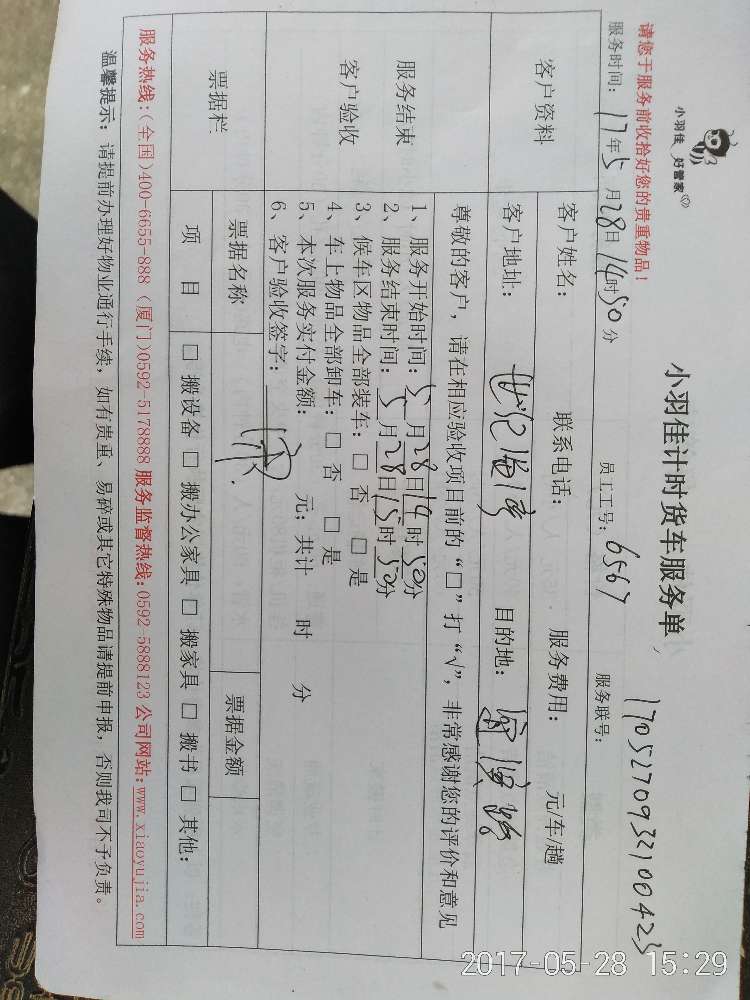 小羽佳 好管家
小羽佳计时货车服务单
请您于服务前收拾好您的贵重物品！
1705270932100425
服务时间：17年5月28日14时50分 员工工号：6567 服务联号：
客户资料
客户姓名： 联系电话： 服务费用： 元/车/趟
客户地址：世纪海湾 目的地：
服务结束
客户验收
尊敬的客户，请在相应验收项目前的“□”打“√”，非常感谢您的评价和意见
1、服务开始时间：5月28日14时50分
2、服务结束时间：5月28日15时50分
3、候车区物品全部装车：□ 否 □ 是
4、车上物品全部卸车：□ 否 □ 是
5、本次服务实付金额： 元；共计 时 分
6、客户验收签字：
票据栏
票据名称 票据金额
项 目 □ 搬设备 □ 搬办公家具 □ 搬家具 □ 搬书 □ 其他：
服务热线：（全国）400-6655-888（厦门）0592-5178888 服务监督热线：0592-5888123 公司网站：www.xiaoyujia.com
温馨提示：请提前办理好物业通行手续，如有贵重、易碎或其它特殊物品请提前申报，否则我司不予负责。
2017-05-28 15:29